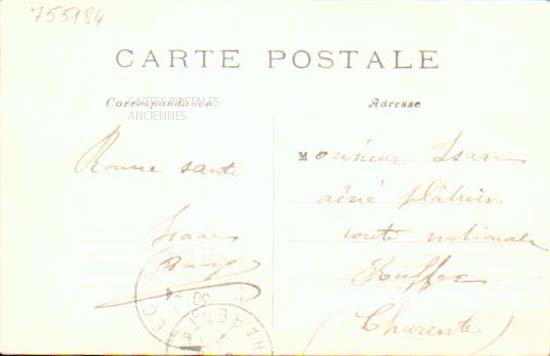 755184
CARTE POSTALE
Correspondance
Adresse
CARTES POSTALES
ANCIENNES
Bonne santé
Isaac
Monsieur Isaac
aîné plâtrier
route nationale
Ruffec
(Charente)